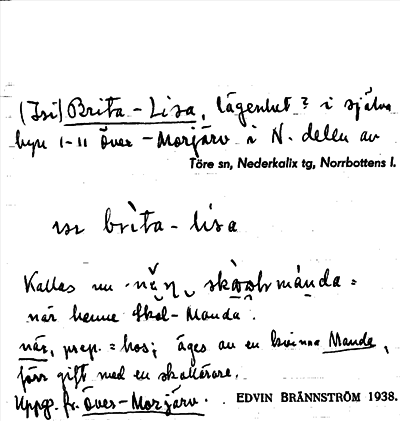 (Isi) Brita-Lisa, lägenhet? i själva
byn 1-11 Över-Morjärv i N. delen av
Töre sn, Nederkalix tg, Norrbottens l.
brìta-lisa
Kallas nu
när henne Skol-Manda.
när, prep. = hos; äges av en kvinna Manda,
förr gift med en skollärare.
Uppg. fr. Över-Morjärv.
EDVIN BRÄNNSTRÖM 1938.